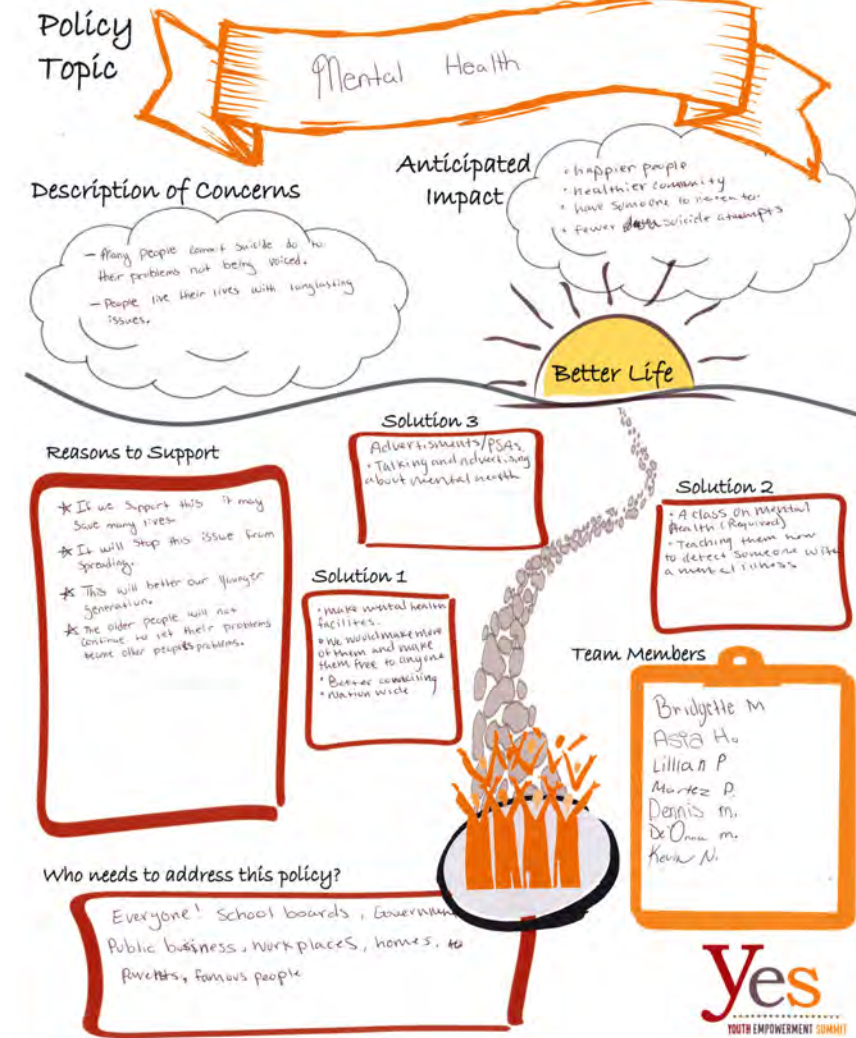 Policy
Topic
Mental Health
Description of Concerns
- Many people commit suicide do to
their problems not being voiced.
- People live their lives with longlasting
issues.
Anticipated
Impact
• happier people
• healthier community
• have someone to listen to
• fewer suicide attempts
Better Life
Reasons to Support
☆ If we support this it may
save many lives.
☆ It will stop this issue from
spreading.
☆ This will better our younger
generation.
☆ The older people will not
continue to let their problems
become other peoples problems.
Solution 3
Advertisments/PSAs.
• Talking and advertising
about mental health
Solution 2
• A class on Mental
Health (Required)
• Teaching them how
to detect someone with
a mental illness
Solution 1
• make mental health
facilites.
• we would make more
of them and make
them free to anyone
• Better
• Nation wide
Team Members
Bridgette M
Asia H.
Lillian P
Martez P.
Dennis m.
De'Onna m.
Kevin N.
Who needs to address this policy?
Everyone! School boards, Governm
Public business, workplaces, homes,
Parents, famous people
yes
YOUTH EMPOWERMENT SUMMIT